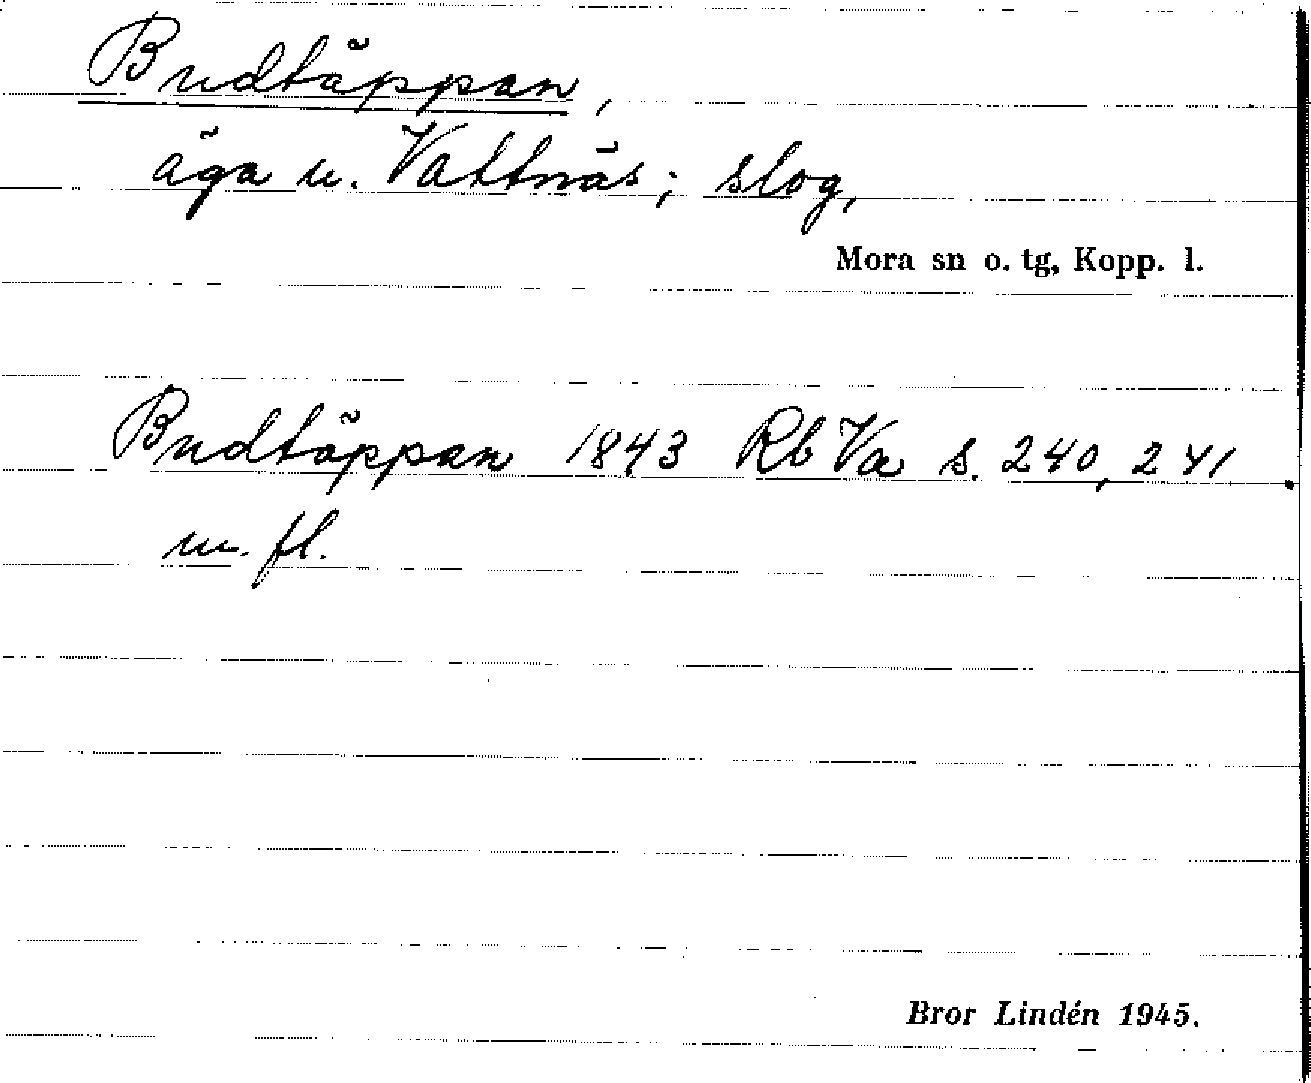 Budtäppan,
äga u. Vattnäs; slog,
Mora sn o. tg, Kopp. l.
Budtäppan 1843 Rb Va s. 240, 241
m. fl.
Bror Lindén 1945.